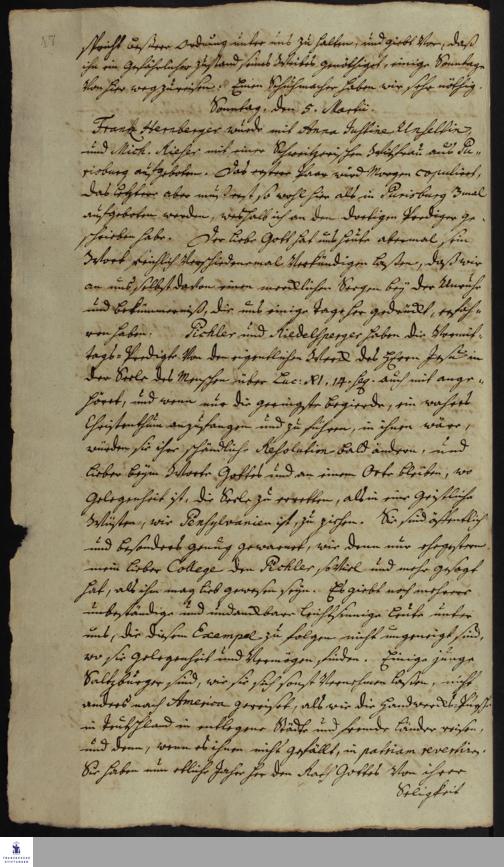 87
spricht bessere Ordnung unter uns zu halten, und giebt vor, daß
ihn ein gefährlicher Zustand seines Weibes genöthiget, einige Sonntage
von hier wegzureisen. Einen Schuhmacher haben wir sehr nöthig.
Sonntag, den 5. Martii.
Frantz Hernberger wurde mit Anna Justine Unseltin,
und Mich. Rieser mit einer Schweitzerischen Witfrau aus Pu-
risburg aufgeboten. Das erstere Paar wird Morgen copuliret,
das letztere aber muß erst so wohl hier als in Purisburg 3mal
aufgeboten werden, weshalb ich an den dortigen Prediger ge-
schrieben habe. Der liebe Gott hat uns heute abermal sein
Wort reichlich verschiedenemal verkündigen lassen, daß wir
an uns selbst davon einen merklichen Seegen bey der Unruhe
und Bekümmerniß, die uns einige Tage her gedrückt, erfah-
ren haben. Pichler und Riedelsperger haben die Vormit-
tags-Predigt von dem eigentlichen Werck des HErrn Jesu in
der Seele des Menschen über Luc: XI, 14. seq. auch mit ange-
höret, und wenn nur die geringste Begierde, ein wahres
Christenthum anzufangen und zu führen, in ihnen wäre,
würden sie ihre schändliche Resolution bald ändern, und
lieber beym Worte Gottes und an einem Orte bleiben, wo
Gelegenheit ist, die Seele zu erretten, als in eine geistliche
Wüsten, wie Pensylvanien ist, zu ziehen. Sie sind öffentlich
und besonders genug gewarnet, wie denn nur ehegestern
mein lieber College dem Pichler so viel und mehr gesagt
hat, als ihm mag lieb gewesen seyn. Es giebt noch mehrere
unbeständige und undanckbare leichtsinnige Leute unter
uns, die diesem Exempel zu folgen nicht ungeneigt sind,
wo sie Gelegenheit und Vermögen finden. Einige junge
Saltzburger sind, wie sie sich sonst vernehmen lassen, nicht
anders nach America gereiset, als wie die Handwercks-Pursche
in Teutschland in entlegene Städte und fremde Länder reisen,
und denn, wenn es ihnen nicht gefällt, in patriam revertiren.
Sie haben nun etliche Jahr her den Rath Gottes von ihrer
Seligkeit
FRANCKESCHE
STIFTUNGEN